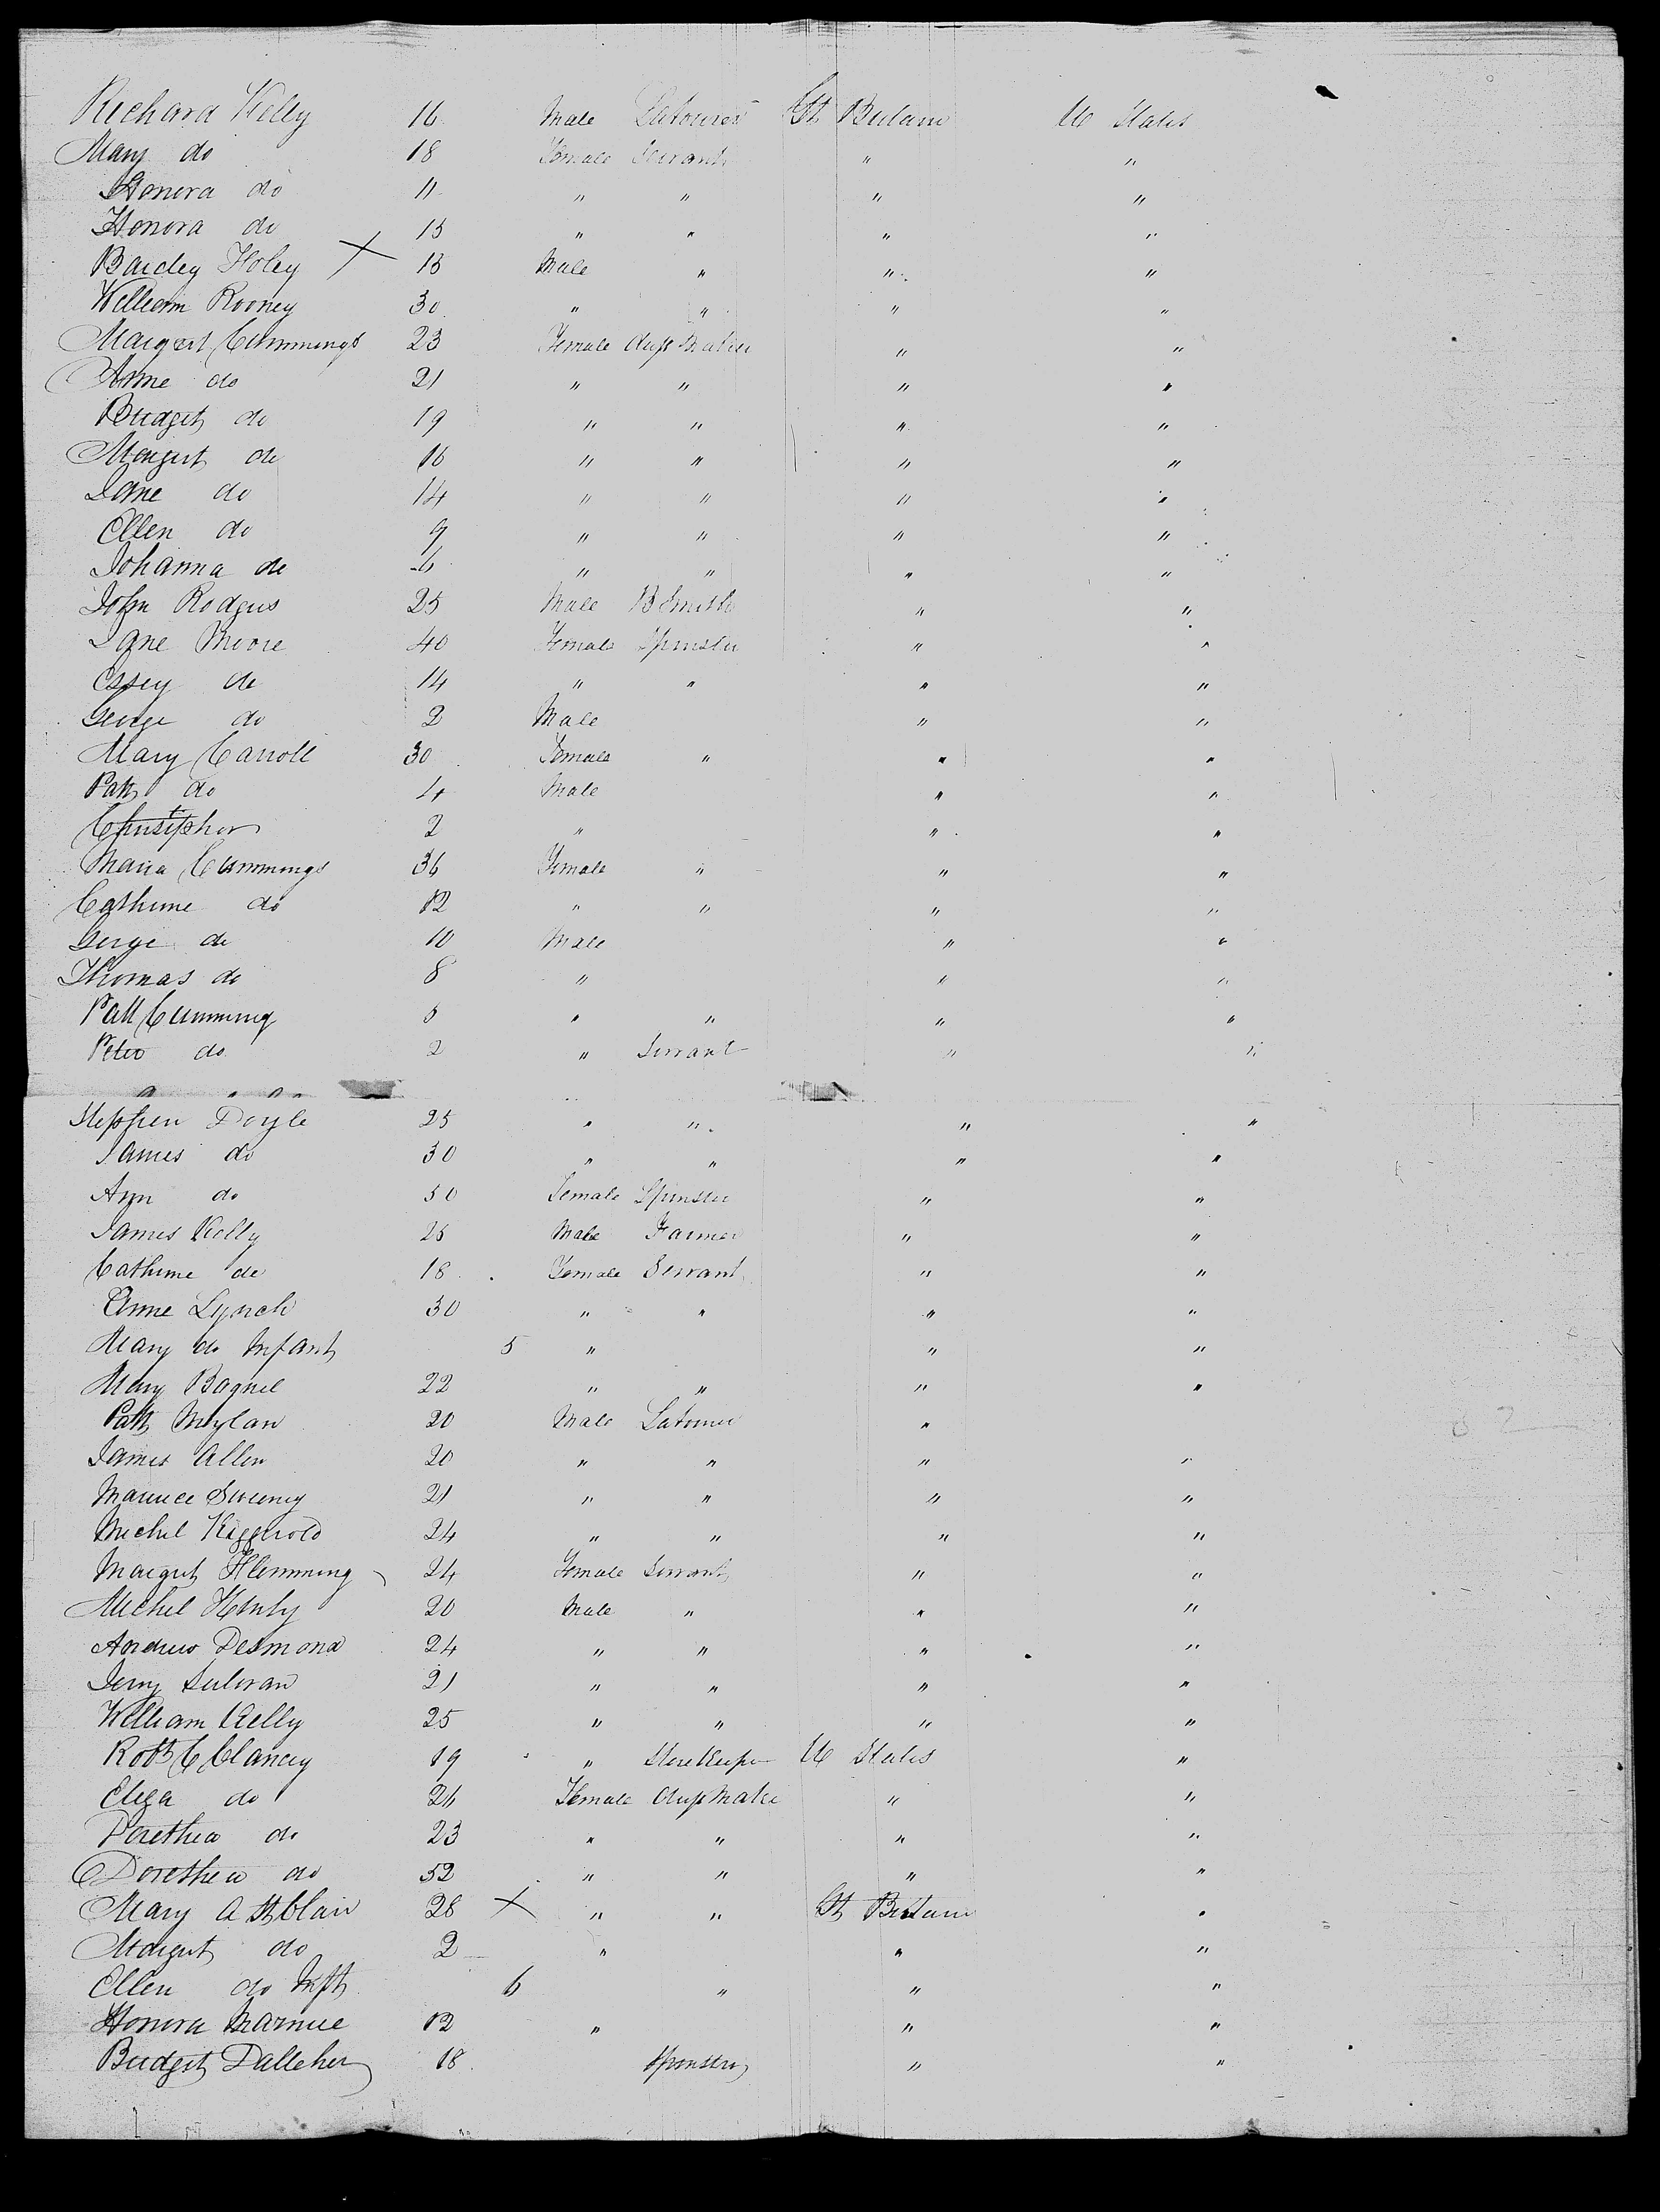 Richard Kelly 16 Male Labourer Gt Britain U States
Mary do 18 Female Servant " "
Honora do 11 " " " "
Honora do 15 " " " "
Bardey Foley X 15 Male " " "
William Rooney 30 " " " "
Margert Cummings 23 Female Maker " "
Anne do 21 " " " "
Bridget do 19 " " " "
Margret do 16 " " " "
Jane do 14 " " " "
Ellen do 9 " " " "
Johanna do 6 " " " "
John Rodgers 25 Male B Smith " "
Jane Moore 40 Female Spinster " "
Essey do 14 " " " "
George do 2 Male " "
Mary Carroll 30 Female " " "
Patk do 4 Male " "
Christpher 2 " " "
Maria Cummings 36 Female " " "
Catherine do 12 " " " "
George do 10 Male " "
Thomas do 8 " " "
Patt Cumming 5 " " " "
Peter do 2 " Servant " "
Stephen Doyle 25 " " " "
James do 30 " " " "
Ann do 50 Female Spinster " "
James Kelly 25 Male Farmer " "
Catherine do 18 Female Servant " "
Anne Lynch 30 " " " "
Mary do Infant 5 " " "
Mary Bagnel 22 " " " "
Patk Moylan 20 Male Labourer "
James Allen 20 " " " "
Maurice Sweeney 21 " " " "
Michel 24 " " " "
Margret Flemming 24 Female Servant " "
Michel Henly 20 Male " " "
Andrew Desmond 24 " " " "
Jerry Sulivan 21 " " " "
William Kelly 25 " " " "
Robt C Clancey 19 " Storekeeper U States "
Eliza do 24 Female Maker " "
Dorethea do 23 " " " "
Dorethea do 52 " " " "
Mary A St Clair 28 X " " Gt Britain "
Margret do 2 " " "
Ellen do Inft 6 " " "
Honora 12 " " "
Bridget Dalleher 18 Spinster " "